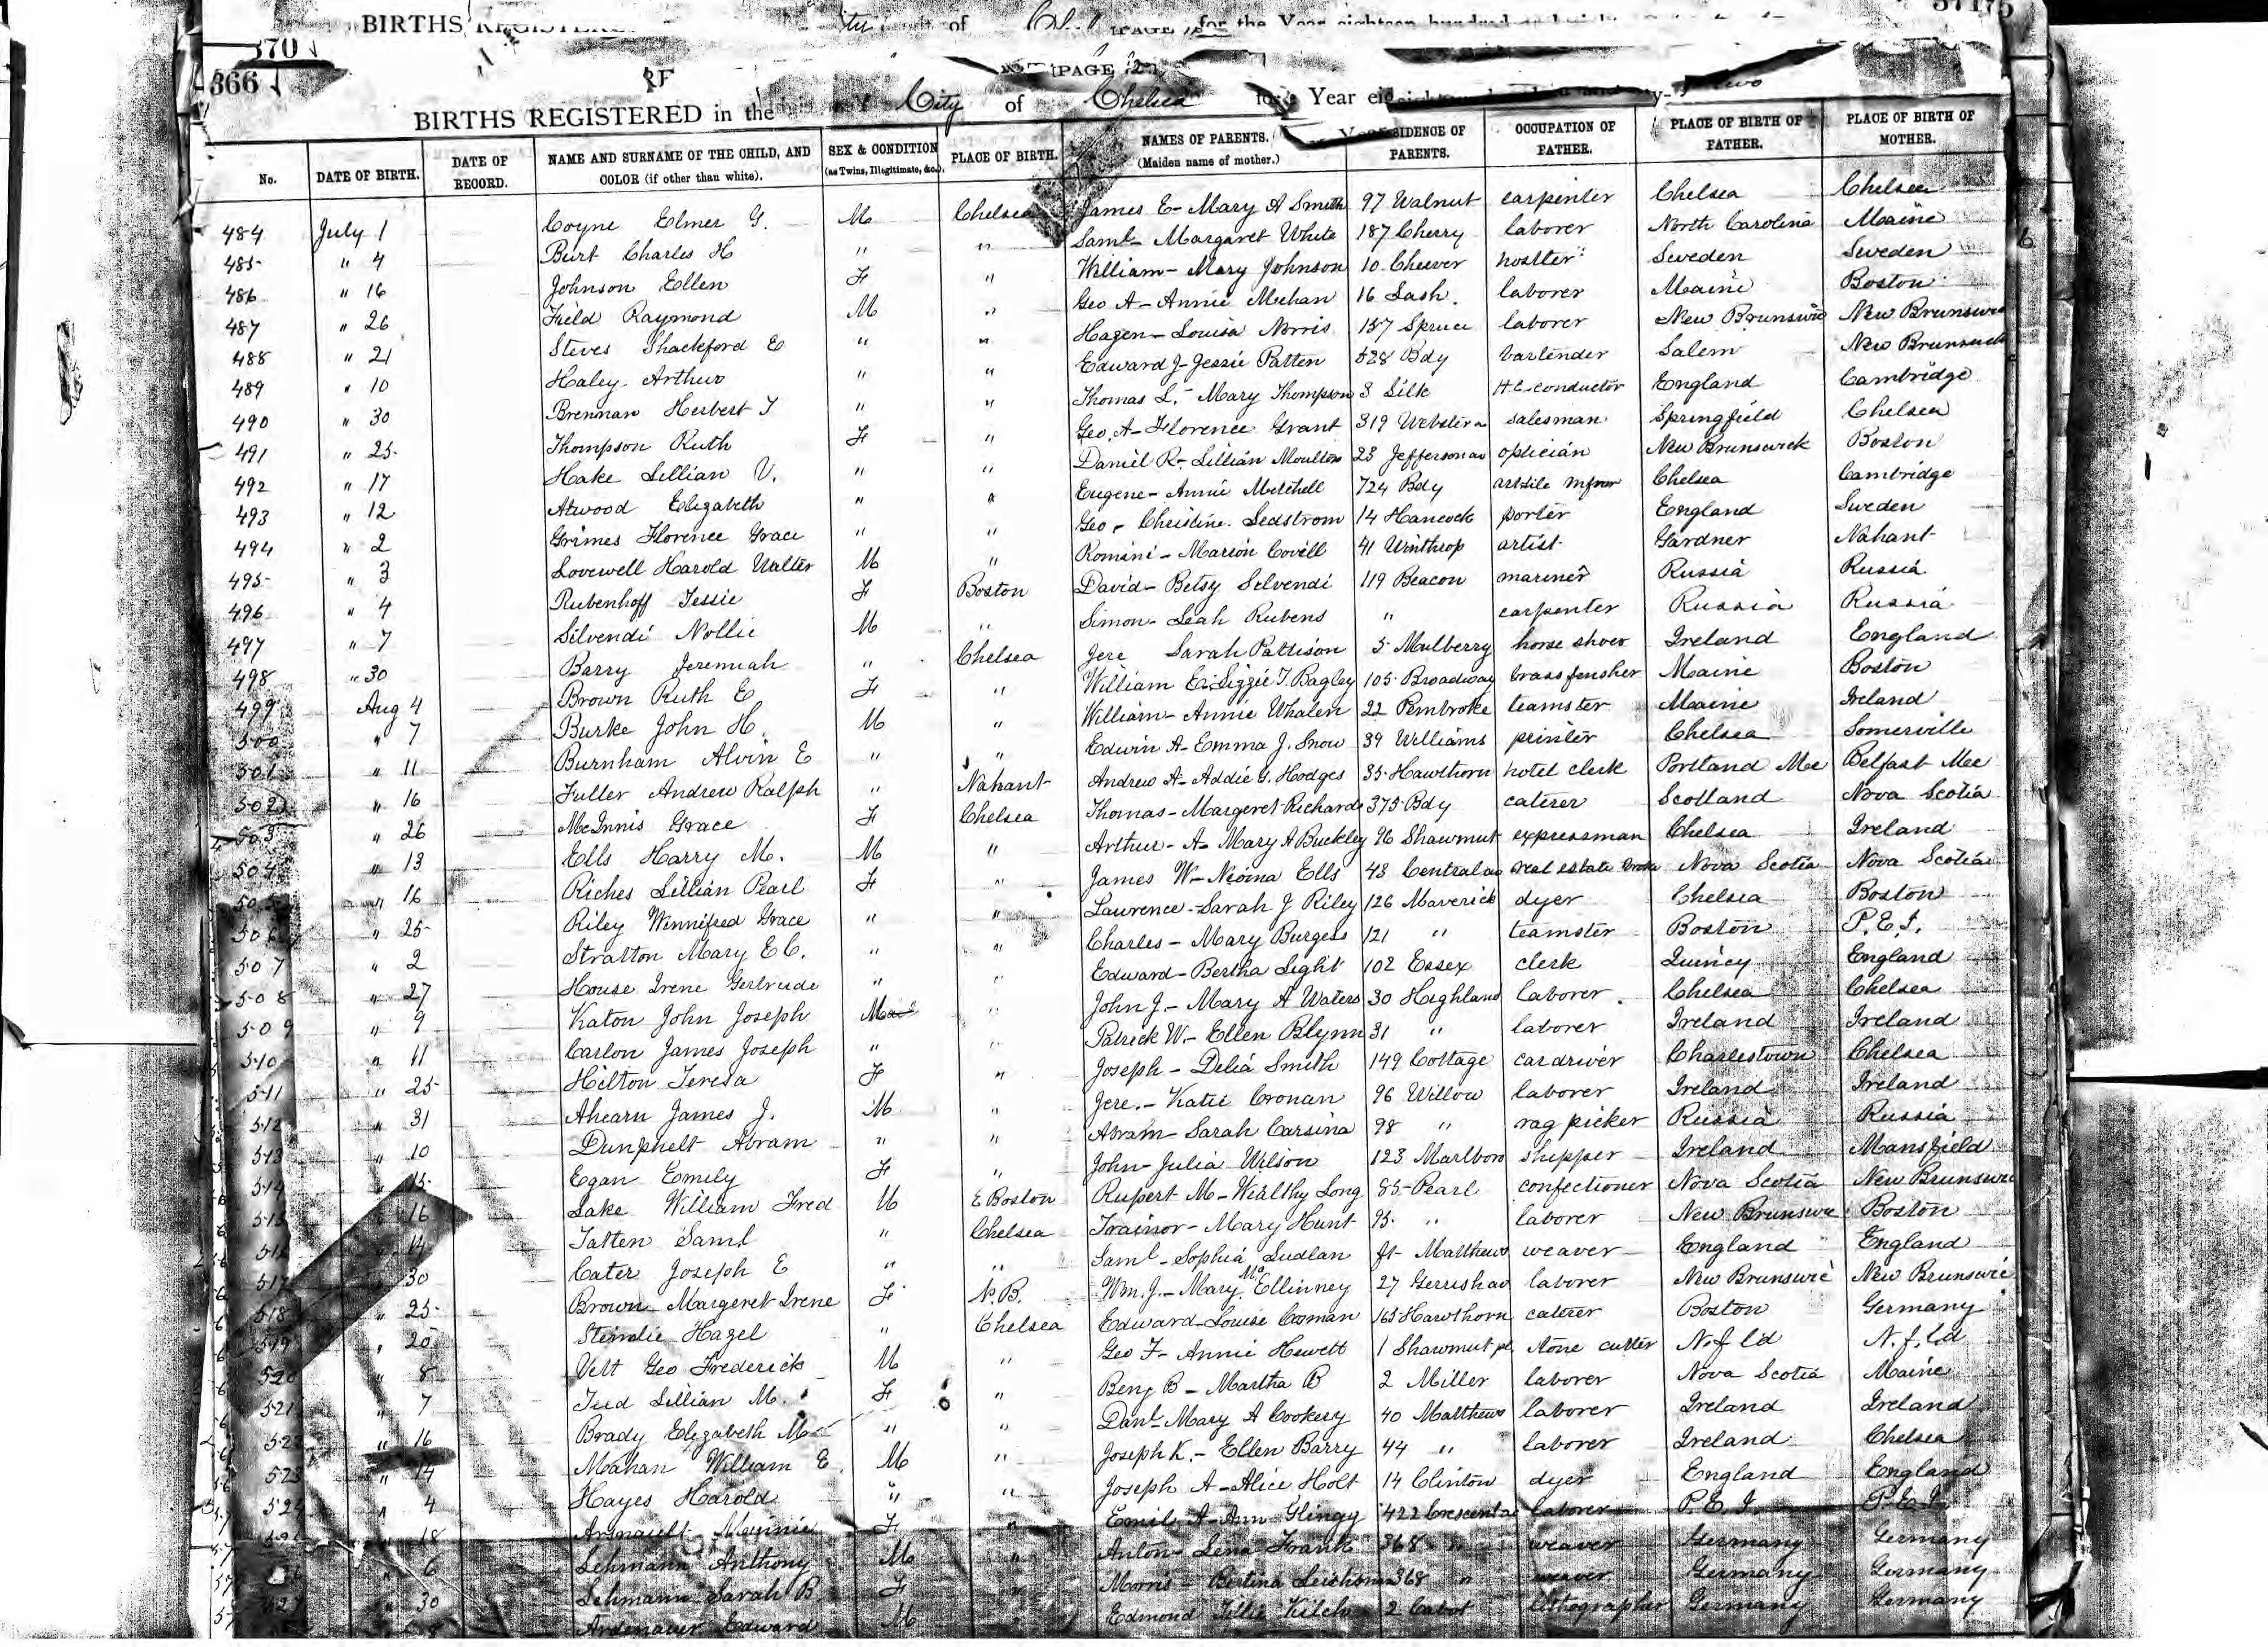 BIRTHS of for the Year eighteen hundred
370
366
PAGE 2
BIRTHS REGISTERED in the City of Chelsea Year two
No. DATE OF BIRTH. DATE OF RECORD. NAME AND SURNAME OF THE CHILD, AND COLOR (if other than white). SEX & CONDITION (as Twins, Illegitimate, &c.). PLACE OF BIRTH. NAMES OF PARENTS. (Maiden name of mother.) RESIDENCE OF PARENTS. OCCUPATION OF FATHER. PLACE OF BIRTH OF FATHER. PLACE OF BIRTH OF MOTHER.
484 July 1 Coyne Elmer G. M Chelsea James E - Mary A Smith 97 Walnut carpenter Chelsea Chelsea
485 " 4 Burt Charles H " " Saml - Margaret White 187 Cherry laborer North Carolina Maine
486 " 16 Johnson Ellen F " William - Mary Johnson 10 Cheever hostler Sweden Sweden
487 " 26 Field Raymond M " Geo A - Annie Meehan 16 Lash. laborer Maine Boston
488 " 21 Steves Shackford E " " Hazen - Louisa Norris 157 Spruce laborer New Brunswic New Brunswic
489 " 10 Haley Arthur " " Edward J - Jessie Patten 528 Bdy bartender Salem New Brunswick
490 " 30 Brennan Herbert T " " Thomas L. - Mary Thompson 3 Silk H C conductor England Cambridge
491 " 25 Thompson Ruth F " Geo. A - Florence Grant 319 Webster a salesman Springfield Chelsea
492 " 17 Hake Lillian V. " " Daniel R - Lillian Moulton 23 Jefferson av optician New Brunswick Boston
493 " 12 Atwood Elizabeth " " Eugene - Annie Mitchell 724 Bdy art tile Chelsea Cambridge
494 " 2 Grimes Florence Grace " " Geo - Christine Sedstrom 14 Hancock porter England Sweden
495 " 3 Lovewell Harold Walter M " Romini - Marion Covell 41 Winthrop artist Gardner Nahant
496 " 4 Rubenhoff Jessie F Boston David - Betsy Selvendi 119 Beacon mariner Russia Russia
497 " 7 Silvendi Nollie M " Simon - Leah Rubens " carpenter Russia Russia
498 " 30 Barry Jeremiah " Chelsea Jere Sarah Pattison 5 Mulberry horse shoer Ireland England
499 Aug 4 Brown Ruth E F " William E - Lizzie T. Bagley 105 Broadway brass finsher Maine Boston
500 " 7 Burke John H. M " William - Annie Whalen 22 Pembroke teamster Maine Ireland
501 " 11 Burnham Alvin E " " Edwin A - Emma J. Snow 39 Williams printer Chelsea Somerville
502 " 16 Fuller Andrew Ralph " Nahant Andrew A - Addie G. Hodges 35 Hawthorn hotel clerk Portland Me Belfast Me
503 " 26 McInnis Grace F Chelsea Thomas - Margeret Richards 375 Bdy caterer Scotland Nova Scotia
504 " 13 Ells Harry M. M " Arthur - A - Mary A Buckley 96 Shawmut expressman Chelsea Ireland
505 " 16 Riches Lillian Pearl F " James W - Neoma Ells 43 Central av real estate broker Nova Scotia Nova Scotia
506 " 25 Riley Winnifred Grace " " Laurence - Sarah J Riley 126 Maverick dyer Chelsea Boston
507 " 2 Stratton Mary E C. " " Charles - Mary Burgess 121 " teamster Boston P.E.I.
508 " 27 House Irene Gertrude " " Edward - Bertha Light 102 Essex clerk Quincy England
509 " 9 Katon John Joseph M " John J - Mary A Waters 30 Highland laborer Chelsea Chelsea
510 " 11 Carlon James Joseph " " Patrick W. - Ellen Blynn 31 " laborer Ireland Ireland
511 " 25 Hilton Teresa F " Joseph - Delia Smith 149 Cottage car driver Charlestown Chelsea
512 " 31 Ahearn James J. M " Jere. - Katie Cronan 96 Willow laborer Ireland Ireland
513 " 10 Dunphelt Abram " " Abram - Sarah Carsina 98 " rag picker Russia Russia
514 " 15 Egan Emily F " John - Julia Wilson 123 Marlboro shipper Ireland Mansfield
515 " 16 Lake William Fred M E Boston Rupert M - Wealthy Long 85 Pearl confectioner Nova Scotia New Brunswic
516 " 14 Tatten Saml " Chelsea Trainor - Mary Hunt 95 " laborer New Brunswic Boston
517 " 30 Cater Joseph E " " Saml - Sophia Ludlan ft Matthews weaver England England
518 " 25 Brown Margeret Irene F N.B. Wm. J. - Mary McEllinney 27 Gerrish av laborer New Brunswic New Brunswic
519 " 20 Steindie Hazel " Chelsea Edward - Louise Cosman 165 Hawthorn caterer Boston Germany
520 " 8 Velt Geo Frederick M " Geo F - Annie Hewett 1 Shawmut pl stone cutter N.f.l'd N.f.l'd
521 " 7 Teed Lillian M. F " Benj B - Martha B 2 Miller laborer Nova Scotia Maine
522 " 16 Brady Elizabeth M " " Danl - Mary A Cookery 40 Matthews laborer Ireland Ireland
523 " 14 Mahan William E. M " Joseph K. - Ellen Barry 44 " laborer Ireland Chelsea
524 " 4 Hayes Harold " " Joseph A - Alice Holt 14 Clinton dyer England England
" 18 Arsnault Minnie F " Emile A - Ann Glingg 422 Crescent av laborer P.E.I. P.E.I.
" 6 Lehmann Anthony M " Anton - Lena Frank 368 " weaver Germany Germany
527 " 30 Lehmann Sarah B. F " Morris - Bertina 368 " weaver Germany Germany
8 Ardenauer Edward M " Edmond Tillie Kilch 2 Cabot lithographer Germany Germany